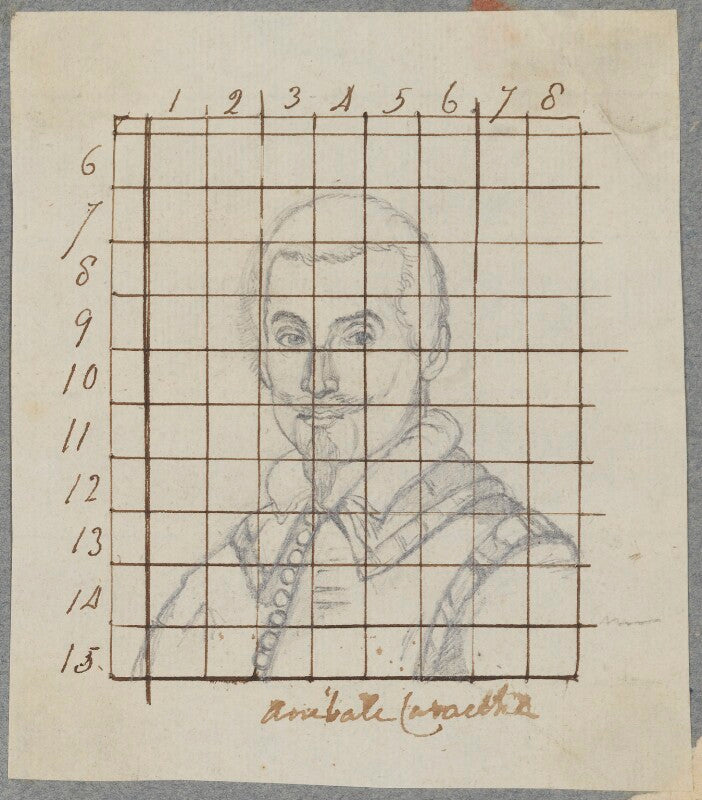 1 2 3 4 5 6 7 8
6
7
8
9
10
11
12
13
14
15.